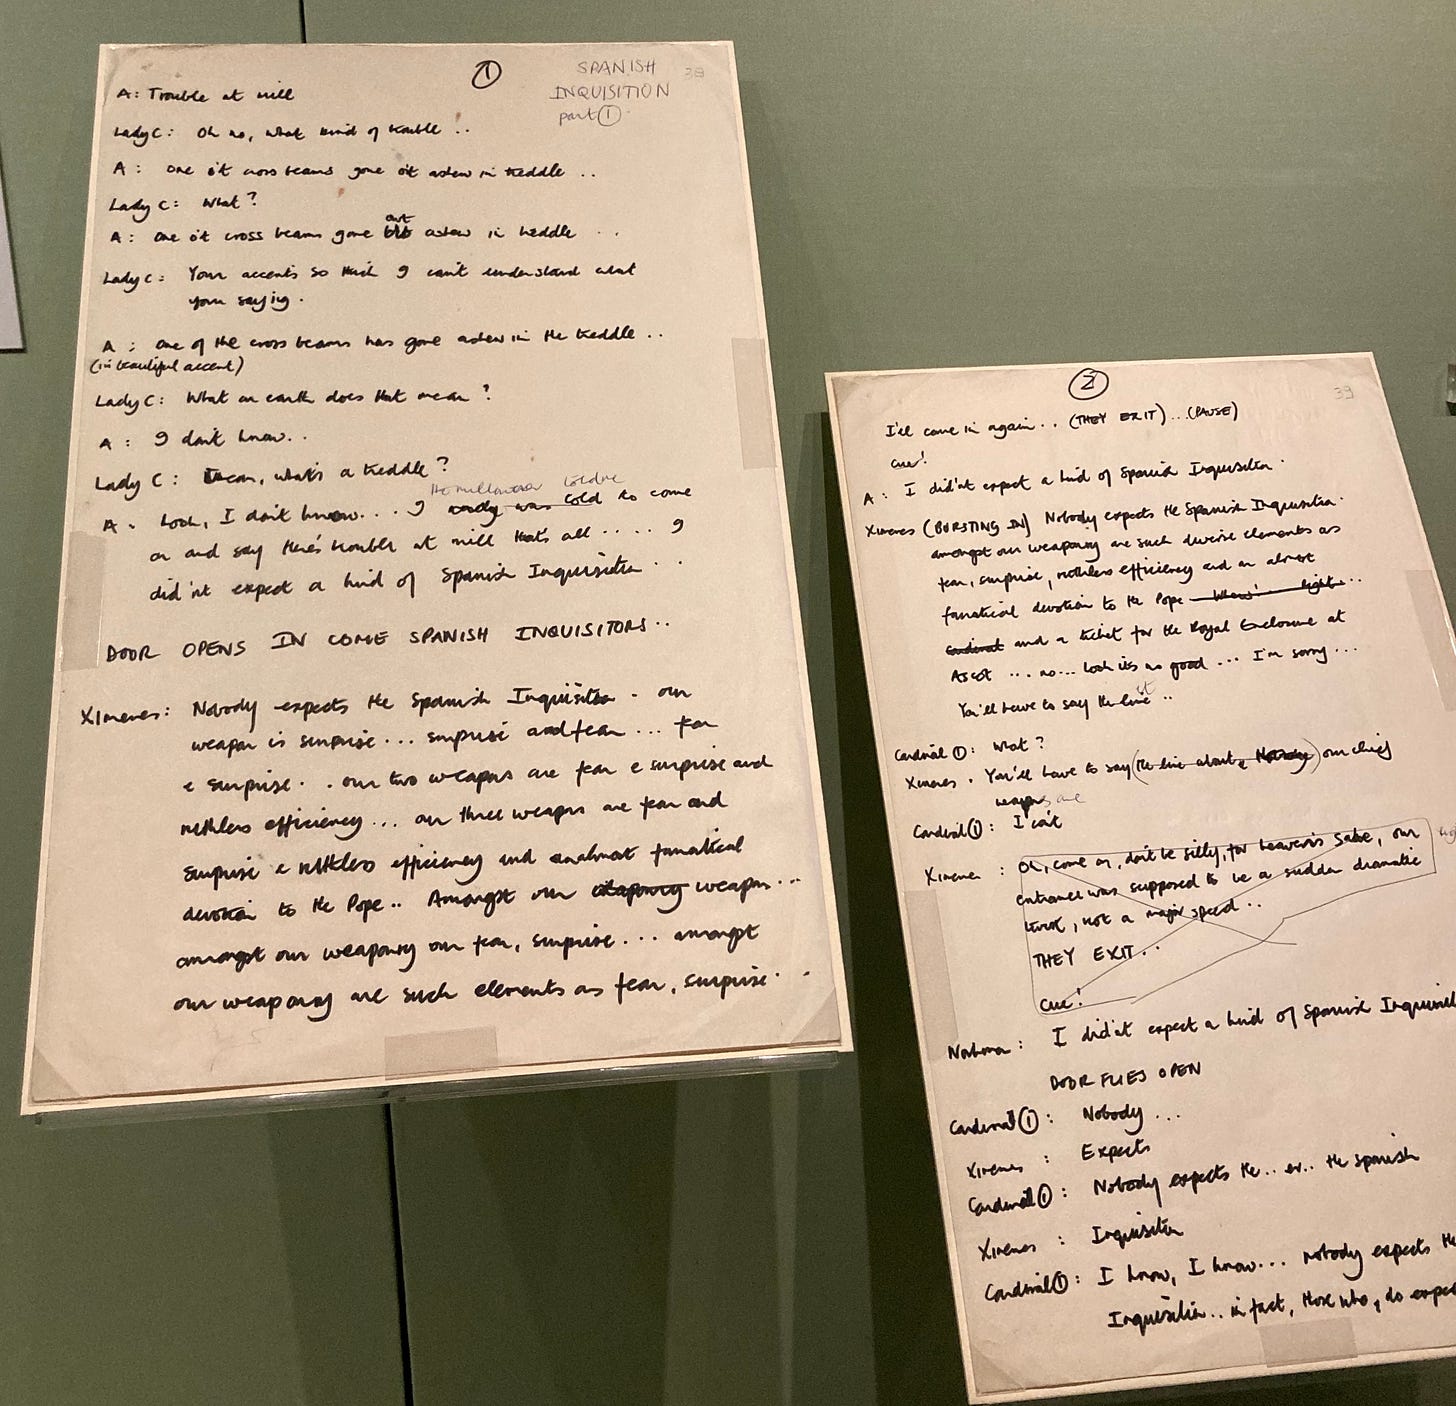 ①
SPANISH
INQUISITION
part ①
38
A: Trouble at mill
Lady C: Oh no, what kind of trouble ..
A: one o't cross beams gone o't askew in treddle ..
Lady C: What?
A: one o't cross beams gone out askew in treddle ...
Lady C: Your accents so thick I can't understand what
your saying.
A: one of the cross beams has gone askew in the treddle ..
(in beautiful accent)
Lady C: What on earth does that mean?
A: I don't know..
Lady C: I mean, what's a treddle?
the millowner told me
A: Look, I don't know.... I was told to come
on and say there's trouble at mill that's all ..... I
did'nt expect a kind of Spanish Inquisition ..
DOOR OPENS IN COME SPANISH INQUISITORS..
Ximenes: Nobody expects the Spanish Inquisition . our
weapon is surprise ... surprise and fear ... fear
& surprise .. our two weapons are fear & surprise and
ruthless efficiency ... our three weapons are fear and
surprise & ruthless efficiency and an almost fanatical
devotion to the Pope .. Amongst our weaponry weapons ...
amongst our weaponry our fear, surprise ... amongst
our weaponry are such elements as fear, surprise ..
②
39
I'll come in again .. (THEY EXIT) ... (PAUSE)
cue!
A: I did'nt expect a kind of Spanish Inquisition.
Ximenes (BURSTING IN) Nobody expects the Spanish Inquisition.
amongst our weaponry are such diverse elements as
fear, surprise, ruthless efficiency and an almost
fanatical devotion to the Pope
cardinal and a ticket for the Royal Enclosure at
Ascot ... no... look its no good ... I'm sorry ...
You'll have to say the line it ..
Cardinal ①: What?
Ximenes . You'll have to say (the line about Nobody) our chief
weapons are
Cardinal ①: I can't
Ximenes : Oh, come on, don't be silly, for heaven's sake, our
entrance was supposed to be a sudden dramatic
, not a major speed ..
THEY EXIT ..
cue!
Northerner : I did'nt expect a kind of Spanish
DOOR FLIES OPEN
Cardinal ①: Nobody ...
Ximenes : Expects
Cardinal ①: Nobody expects the .. er.. the Spanish
Ximenes : Inquisition
Cardinal ①: I know, I know... nobody expects the
Inquisition .. in fact, those who, do